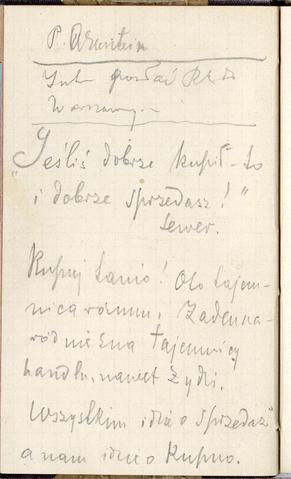 P. Orenstein
posłać
Warszawy.
"Jeśliś dobrze kupił - to
i dobrze sprzedasz!"
Sewer.
Kupuj tanio! Oto tajem-
nica rozumu. Żaden na-
ród nie zna tajemnicy
handlu, nawet Żydzi.
Wszystkim idzie o sprzedaż
a nam idzie o Kupno.